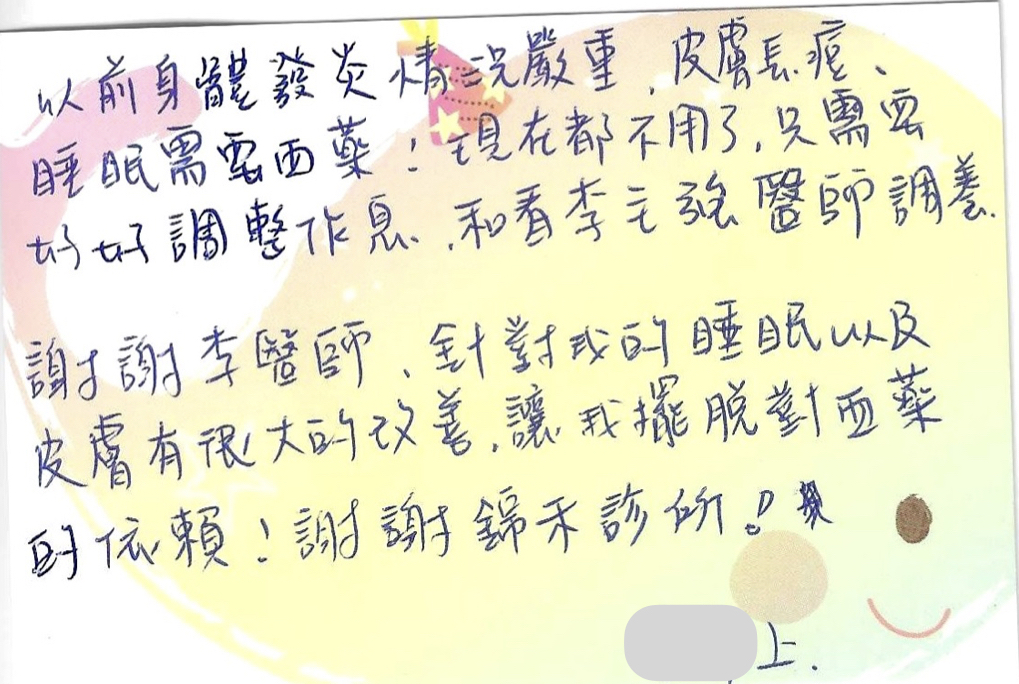 以前身體發炎情況嚴重，皮膚長痘、
睡眠需要西藥！現在都不用了，只需要
好好調整作息，和看李主強醫師調養.
謝謝李醫師、針對我的睡眠以及
皮膚有很大的改善，讓我擺脫對西藥
的依賴！謝謝錦禾診所！
上.